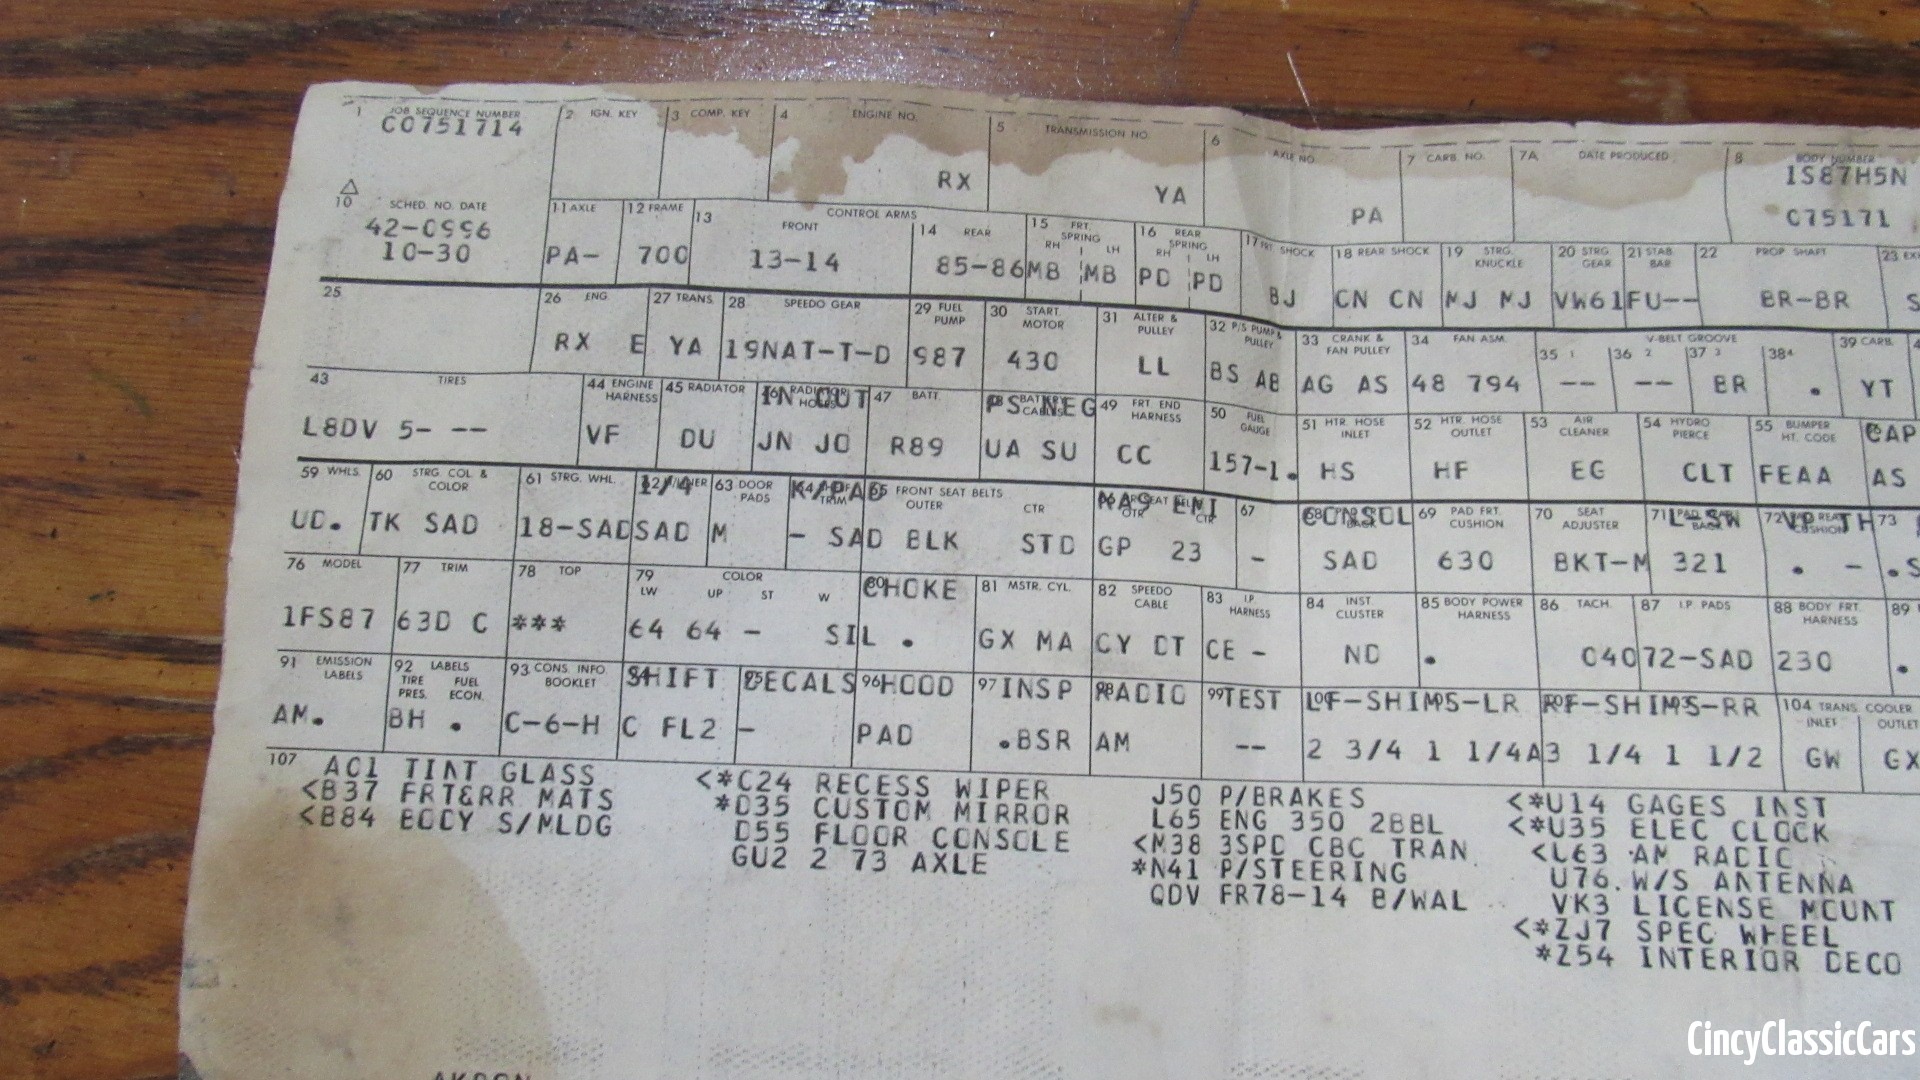 1 JOB SEQUENCE NUMBER 2 IGN. KEY 3 COMP. KEY 4 ENGINE NO. 5 TRANSMISSION NO. 6 AXLE NO. 7 CARB. NO. 7A DATE PRODUCED 8 BODY NUMBER
C0751714 RX YA PA 1S87H5N
075171
10 SCHED. NO. DATE 11 AXLE 12 FRAME 13 CONTROL ARMS FRONT 14 REAR 15 FRT. SPRING RH LH 16 REAR SPRING RH LH 17 FRT. SHOCK 18 REAR SHOCK 19 STRG. KNUCKLE 20 STRG. GEAR 21 STAB. BAR 22 PROP SHAFT 23
42-0996
10-30 PA- 700 13-14 85-86 MB MB PD PD BJ CN CN MJ MJ VW61 FU-- BR-BR S
25 26 ENG. 27 TRANS. 28 SPEEDO GEAR 29 FUEL PUMP 30 START. MOTOR 31 ALTER & PULLEY 32 P/S PUMP & PULLEY 33 CRANK & FAN PULLEY 34 FAN ASM. V-BELT GROOVE 35 1 36 2 37 3 38 4 39 CARB.
RX E YA 19NAT-T-D 987 430 LL BS AB AG AS 48 794 -- -- BR . YT
43 TIRES 44 ENGINE HARNESS 45 RADIATOR IN OUT 47 BATT. PS NEG 49 FRT. END HARNESS 50 FUEL GAUGE 51 HTR. HOSE INLET 52 HTR. HOSE OUTLET 53 AIR CLEANER 54 HYDRO PIERCE 55 BUMPER HT. CODE CAP
L8DV 5- -- VF DU JN JO R89 UA SU CC 157-1. HS HF EG CLT FEAA AS
59 WHLS. 60 STRG. COL & COLOR 61 STRG. WHL. 1/4 63 DOOR PADS K/PAD 65 FRONT SEAT BELTS OUTER CTR 67 CONSOL 69 PAD FRT. CUSHION 70 SEAT ADJUSTER 71 L-SW 72 73
UD. TK SAD 18-SAD SAD M - SAD BLK STD GP 23 - SAD 630 BKT-M 321 . - .S
76 MODEL 77 TRIM 78 TOP 79 COLOR LW UP ST W 80 CHOKE 81 MSTR. CYL. 82 SPEEDO CABLE 83 I.P. HARNESS 84 INST. CLUSTER 85 BODY POWER HARNESS 86 TACH. 87 I.P. PADS 88 BODY FRT. HARNESS 89
1FS87 63D C *** 64 64 - SIL . GX MA CY DT CE - ND . 04072-SAD 230 .
91 EMISSION LABELS 92 LABELS TIRE PRES. FUEL ECON. 93 CONS. INFO BOOKLET SHIFT DECALS 96 HOOD 97 INSP 98 RADIO 99 TEST LF-SHIMS-LR RF-SHIMS-RR 104 TRANS COOLER INLET OUTLET
AM. BH . C-6-H C FL2 - PAD .BSR AM -- 2 3/4 1 1/4A 3 1/4 1 1/2 GW GX
107 A01 TINT GLASS <*C24 RECESS WIPER J50 P/BRAKES <*U14 GAGES INST
<B37 FRT&RR MATS *D35 CUSTOM MIRROR L65 ENG 350 2BBL <*U35 ELEC CLOCK
<B84 BODY S/MLDG D55 FLOOR CONSOLE <M38 3SPD CBC TRAN <U63 AM RADIO
GU2 2 73 AXLE *N41 P/STEERING U76 W/S ANTENNA
QDV FR78-14 B/WAL VK3 LICENSE MOUNT
<*ZJ7 SPEC WHEEL
*Z54 INTERIOR DECO
AKRON
CincyClassicCars